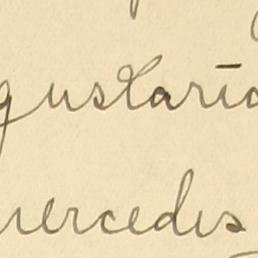 gustaria
mercedes